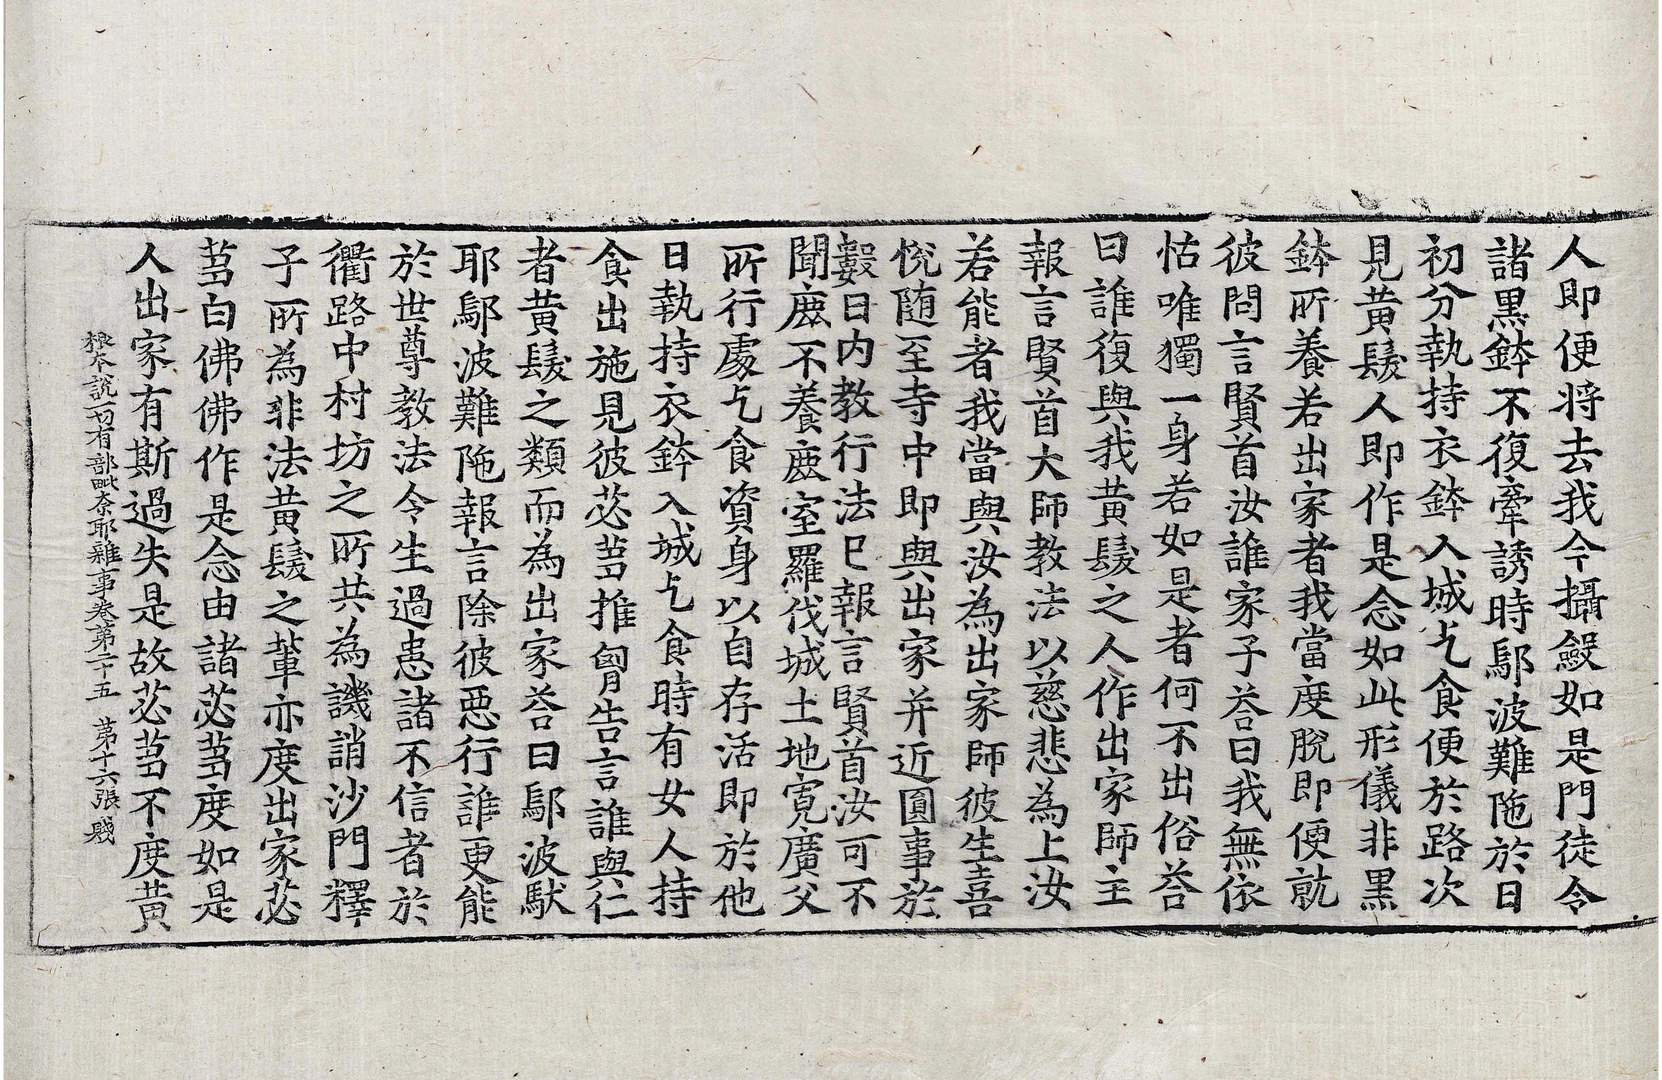 人即便將去我今攝斂如是門徒令
諸黑鉢不復牽誘時鄔波難陁於日
初分執持衣鉢入城乞食便於路次
見黃髮人即作是念如此形儀非黑
鉢所養若出家者我當度脫即便就
彼問言賢首汝誰家子荅曰我無依
怙唯獨一身若如是者何不出俗荅
曰誰復與我黃髮之人作出家師主
報言賢首大師教法以慈悲為上汝
若能者我當與汝為出家師彼生喜
悅随至寺中即與出家并近圓事於
數日內教行法已報言賢首汝可不
聞鹿不養鹿室羅伐城土地寬廣父
所行處乞食資身以自存活即於他
日執持衣鉢入城乞食時有女人持
食出施見彼苾芻推胷告言誰與仁
者黃髮之類而為出家荅曰鄔波馱
耶鄔波難陁報言除彼惡行誰更能
於世尊教法令生過患諸不信者於
衢路中村坊之所共為譏誚沙門釋
子所為非法黃髮之輩亦度出家苾
芻白佛佛作是念由諸苾芻度如是
人出家有斯過失是故苾芻不度黃
根本說一切有部毗奈耶雜事卷第二十五　第十六張　賤